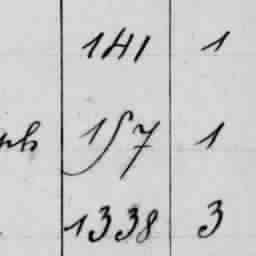 141 1
157 1
1338 3